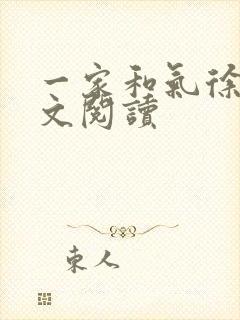 一家和氣徐
文閱讀
東人